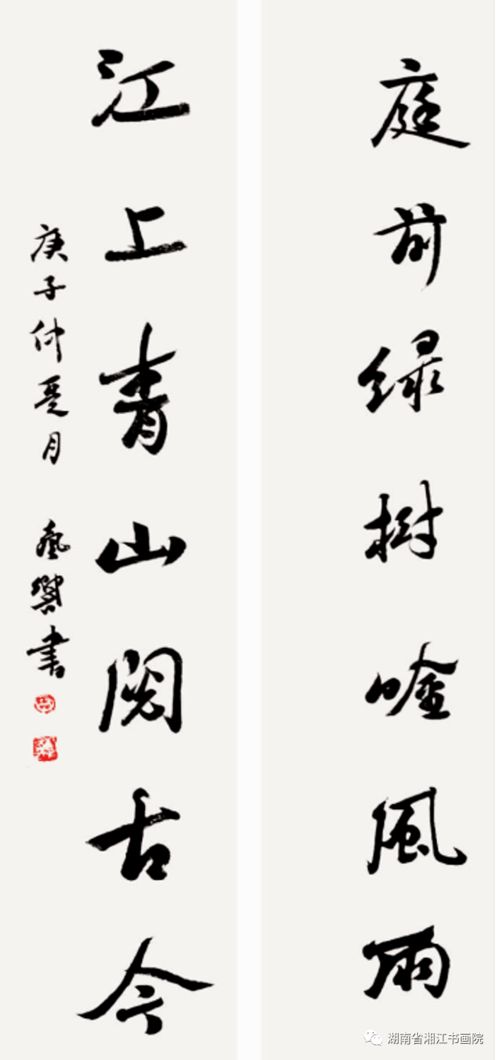 庭前緑樹唫風雨
江上青山閱古今
庚子仲夏月 書
湖南省湘江书画院